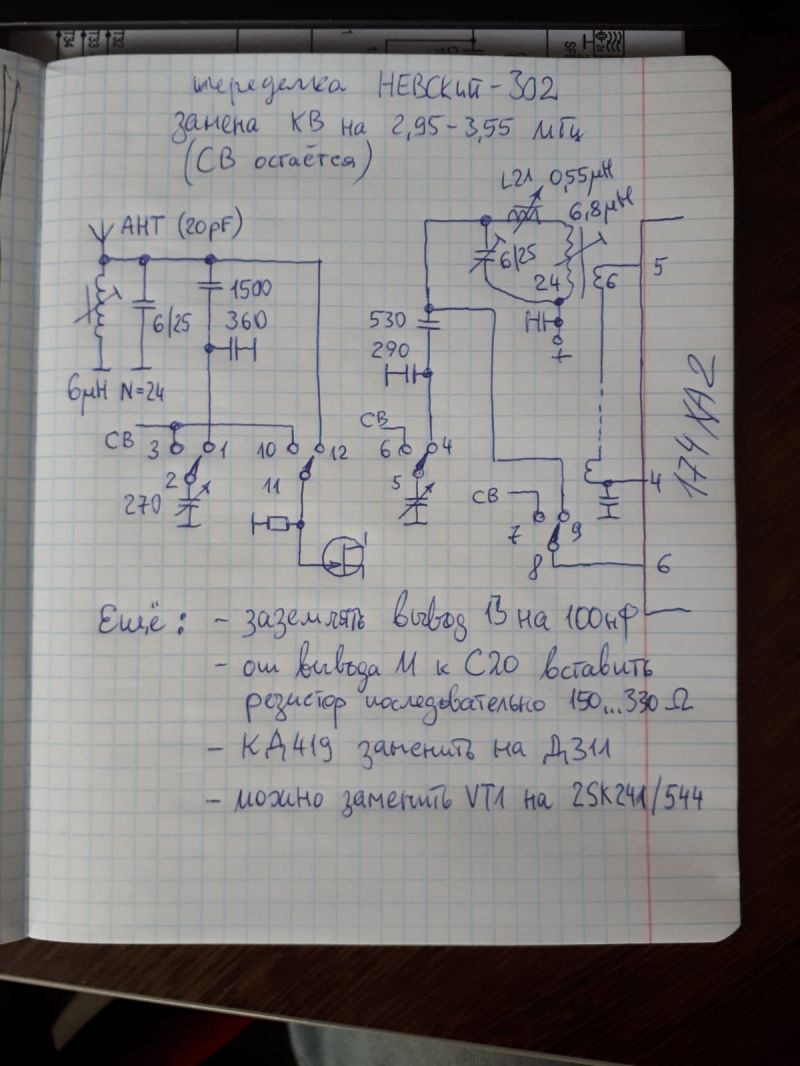 T34
T33
T32
переделка НЕВСКИЙ-302
замена КВ на 2,95-3,55 мГц
(СВ остаётся)
L21 0,55μH
6,8μH
АНТ (20pF)
6/25
1500
360
6μH N=24
530
290
6/25
24
6
5
174ХА2
СВ
3
1
10
12
2
11
270
СВ
6
4
5
СВ
7
9
8
4
6
+
Ещё: - заземлять вывод 13 на 100нФ
- от вывода 11 к С20 вставить
резистор последовательно 150...330 Ω
- КД419 заменить на Д311
- можно заменить VT1 на 2SK241/544